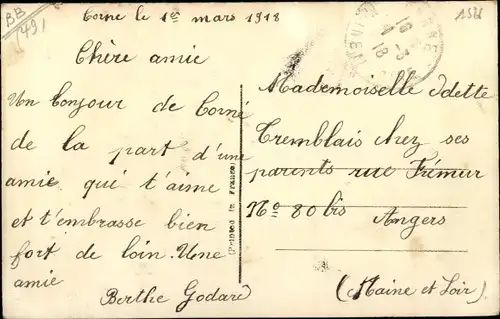 BB
749
Corné le 1er mars 1918
1526
Chère amie
Un bonjour de Corné
de la part d'une
amie qui t'aime
et t'embrasse bien
fort de loin. Une
amie
Berthe Godard
(Printed in France)
Mademoiselle Odette
Tremblais chez ses
parents rue Frémur
No 80 bis
Angers
(Maine et Loir)